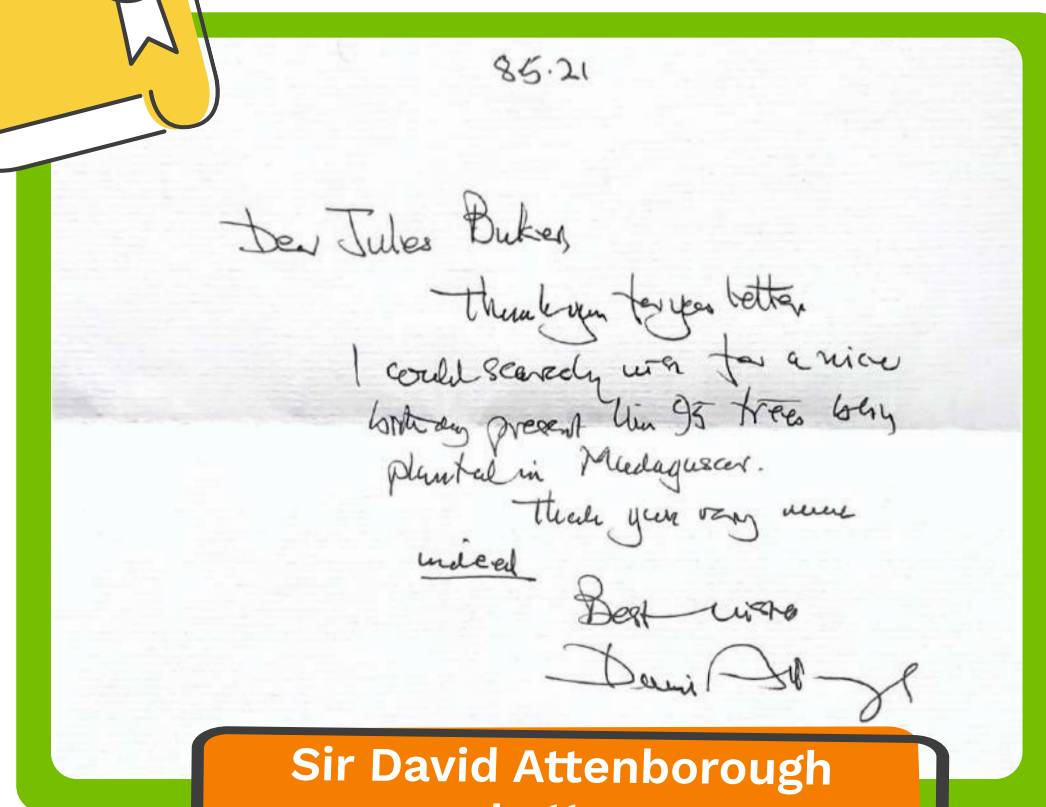 85.21
Dear Jules Bukers,
Thank you for your letter
I could scarcely wish for a nicer
birthday present than 95 trees being
planted in Madagascar.
Thank you very much
indeed
Best wishes
David Att
Sir David Attenborough